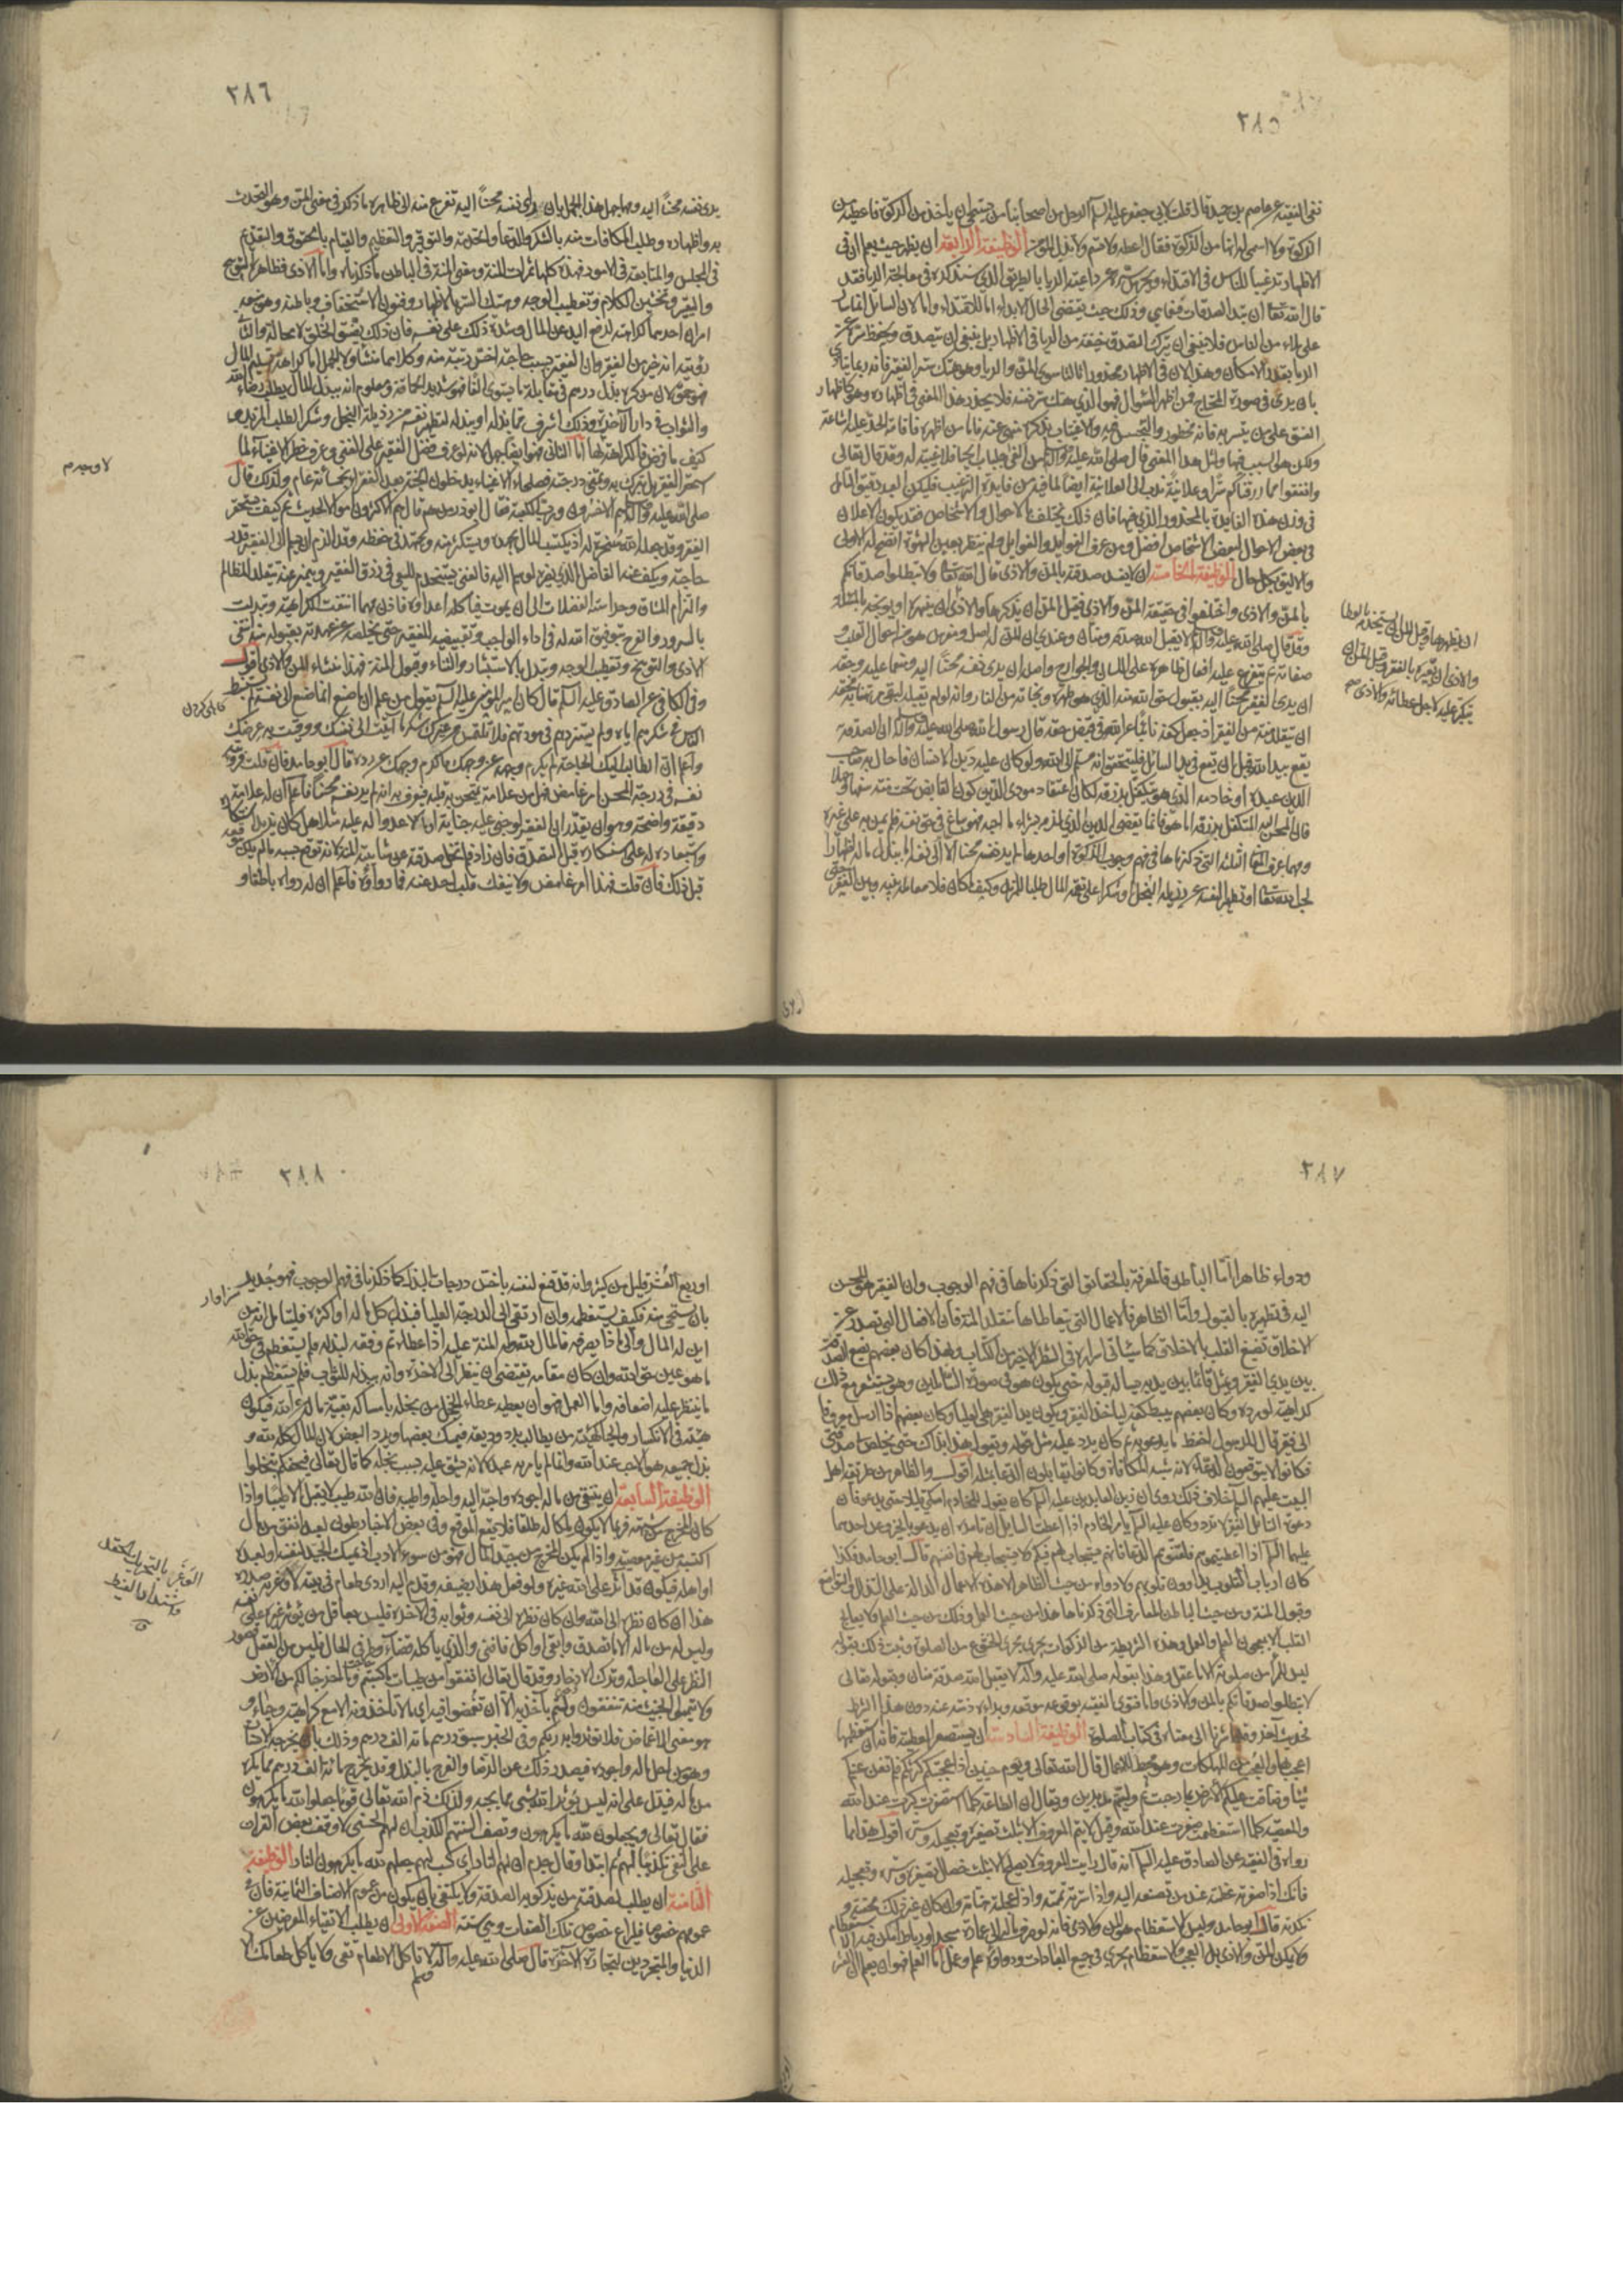 ٣٨٥
ففي الفقيه عن عاصم بن حميد قال قلت لابي جعفر عليه السلام الرجل من اصحابنا من يستحيي ان يأخذ من الزكوة فاعطيه من
الزكوة ولا اسمي له انها من الزكوة فقال اعطه ولا تسم ولا تذل المؤمن الوظيفة الرابعة ان يظهر حيث يعلم ان في
الاظهار ترغيبا للناس في الاقتداء ويحرس سره عن داعية الرياء بالطريق الذي سنذكره في معالجة الرياء فقد
قال الله تعالى ان تبدوا الصدقات فنعما هي وذلك حيث يقتضي الحال الابداء اما للاقتداء واما لان السائل انما سأل
على ملاء من الناس فلا ينبغي ان يترك التصدق خيفة من الرياء في الاظهار بل ينبغي ان يتصدق ويحفظ سره عن
الرياء بقدر الامكان وهذا لان في الاظهار محذورا ثالثا سوى المن والرياء وهو هتك ستر الفقير فانه ربما يتأذى
بان يرى في صورة المحتاج فمن اظهر السؤال فهو الذي هتك ستر نفسه فلا يحذر هذا المعنى في اظهاره وهو كاظهار
الفسق على من يتستر به فانه محظور والتجسس فيه والاغتياب بذكره منهي عنه فاما من اظهره فاقامة الحد عليه اشاعة
ولكن هو السبب فيها ولمثل هذا المعنى قال صلى الله عليه وآله من القى جلباب الحياء فلا غيبة له وقد قال تعالى
وانفقوا مما رزقناكم سرا وعلانية ندب الى العلانية ايضا لما فيه من فايدة الترغيب فليكن العبد دقيق التأمل
في وزن هذه الفايدة بالمحذور الذي فيها فان ذلك يختلف بالاحوال والاشخاص فقد يكون الاعلان
في بعض الاحوال لبعض الاشخاص افضل ومن عرف الفوايد والغوايل ولم ينظر بعين الشهوة اتضح له الاولى
والاليق بكل حال الوظيفة الخامسة ان لا يفسد صدقته بالمن والاذى قال الله تعالى ولا تبطلوا صدقاتكم
بالمن والاذى واختلفوا في حقيقة المن والاذى فقيل المن ان يذكرها والاذى ان
وقد قال صلى الله عليه وآله لا يقبل الله صدقة منان وعندي ان المن له اصل ومغرس وهو من احوال القلب و
صفاته ثم يتفرع عليه افعال ظاهرة على اللسان والجوارح واصله ان يرى نفسه محسنا اليه ومنعما عليه وحقه
ان يرى الفقير محسنا اليه بقبول حق الله منه الذي هو طهره ونجاته من النار وانه لو لم يقبله لبقي مرتهنا به فحقه
ان يتقلد منة من الفقير اذ جعل كفه نائبا عن الله في قبض حقه قال رسول الله صلى الله عليه وآله ان الصدقة
يقع بيد الله قبل ان يقع في يد السائل فليتحقق انه مسلم الى الله ولو كان عليه دين لانسان فاحال به صاحب
الدين عبده او خادمه الذي هو متكفل برزقه لكان اعتقاد مودي الدين كون القابض تحت منته سفها وجهلا
فان المحسن اليه المتكفل برزقه اما هو فانما يقضي الدين الذي لزمه بشراء ما احبه فهو ساع في حق نفسه فلم يمن به على غيره
ومهما عرف المعاني الثلثة التي ذكرناها في فهم وجوب الزكوة او احدها لم ير نفسه محسنا الا الى نفسه اما ببذل ماله اظهارا
لحب الله تعالى او تطهيرا لنفسه عن رذيلة البخل او شكرا على نعمة المال طلبا للمزيد وكيف ما كان فلا معاملة بينه وبين الفقير حتى
ان يظهرها وقيل المن ان يستخدمه بالعطاء
والاذى ان يعيره بالفقر وقيل المن ان
يتكبر عليه لاجل عطائه والاذى
٣٨٦
يرى نفسه محسنا اليه ومهما جهل هذا الجهل بان رأى نفسه محسنا اليه تفرع منه الى ظاهره ما ذكر في معنى المن وهو التحدث
به واظهاره وطلب المكافات منه بالشكر والدعاء والخدمة والتوقير والتعظيم والقيام بالحقوق والتقديم
في المجلس والمتابعة في الامور فهذه كلها ثمرات المنة ومعنى المنة في الباطن ما ذكرناه واما الاذى فظاهره التوبيخ
والتعيير وتخشين الكلام وتقطيب الوجه وهتك الستر بالاظهار وفنون الاستخفاف وباطنه وهو منبعه
امران احدهما كراهته لرفع اليد عن المال وشدة ذلك على نفسه فان ذلك يضيق الخلق لا محالة والثاني
رؤيته انه خير من الفقير وان الفقير بسبب حاجته اخس رتبة منه وكلاهما منشأه الجهل اما كراهة تسليم المال
فهو حمق لان من كره بذل درهم في مقابلة ما يسوى الفا فهو شديد الحماقة ومعلوم انه يبذل المال لطلب رضاء الله
والثواب في دار الآخرة وذلك اشرف مما بذله او يبذله لتطهير نفسه عن رذيلة البخل وشكر الطلب المزيد و
كيف ما فرض فالكراهة لها اما الثاني فهو ايضا جهل لانه لو عرف فضل الفقير على الغني وعرف خطر الاغنياء لما
استحقر الفقير بل تبرك به وتمنى درجته فصلحاء الاغنياء يدخلون الجنة بعد الفقراء بخمسمائة عام ولذلك قال
صلى الله عليه وآله هم الاخسرون ورب الكعبة فقال ابوذر من هم قال هم الاكثرون اموالا الحديث ثم كيف يستحقر
الفقير وقد جعله الله سخرة له اذ يكتسب المال بجهده ويستكثر منه ويجتهد في حفظه وقد الزم ان يسلم الى الفقير قدر
حاجته ويكف عنه الفاضل الذي يضره لو سلم اليه فالغني مستخدم للسعي في رزق الفقير ويتميز عنه بتقلد المظالم
والتزام المشاق وحراسة الفضلات الى ان يموت فيأكله اعداؤه فاذن مهما انتفت الكراهية وتبدلت
بالسرور والفرح بتوفيق الله له في اداء الواجب وتقييضه للفقير حتى يخلصه عن عهدته بقبوله منه انتفى
الاذى والتوبيخ وتقطيب الوجه وتبدل بالاستبشار والثناء وقبول المنة فهذا منشاء المن والاذى اقول
وفي الكافي عن الصادق عليه السلام قال كان امير المؤمنين عليه السلام يقول من علم ان ما صنع انما صنع الى نفسه لم يستبط
الناس في شكرهم اياه ولم يستزدهم في مودتهم فلا تلتمس من غيرك شكر ما اتيت الى نفسك ووقيت به عرضك
واعلم ان الطالب اليك الحاجة لم يكرم وجهه عن وجهك فاكرم وجهك عن رده قال ابو حامد فان قلت فرؤية
نفسه في درجة المحسن امر غامض فهل من علامة يمتحن به قلبه فيعرف به انه لم ير نفسه محسنا فاعلم ان له علامة
دقيقة واضحة وهو ان يقدر ان الفقير لو جنى عليه جناية او مالأ عدوا له عليه مثلا هل كان يزيد استنكاره
واستبعاده له على استنكاره قبل التصدق فان زاد فلم تخل صدقته عن شائبة المنة لانه توقع بسببه ما لم يكن يتوقعه
قبل ذلك فان قلت فهذا امر غامض ولا ينفك قلب احد عنه فما دواؤه فاعلم ان له دواء باطنا و
٣٨٧
ودواء ظاهرا اما الباطن فالمعرفة بالحقايق التي ذكرناها في فهم الوجوب وان الفقير هو المحسن
اليه في تطهيره بالقبول واما الظاهر فالاعمال التي يتعاطاها متقلد المنة فان الافعال التي تصدر عن
الاخلاق تصبغ القلب بالاخلاق كما سيأتي اسراره في الشطر الاخير من الكتاب ولهذا كان بعضهم يضع الصدقة
بين يدي الفقير ويمثل قائما بين يديه يسأله قبوله حتى يكون هو في صورة السائلين وهو يستشعر مع ذلك
كراهية لو رده وكان بعضهم يبسط كفه ليأخذ الفقير ويكون يد الفقير هي العليا وكان بعضهم اذا ارسل معروفا
الى فقير قال للرسول احفظ ما يدعو به ثم كان يرد عليه مثل قوله ويقول هذا بذاك حتى يخلص لي صدقتي
فكانوا لا يتوقعون الدعاء لانه شبه المكافاة وكانوا يقابلون الدعاء بمثله اقول والظاهر من طريقة اهل
البيت عليهم السلام خلاف ذلك روي ان زين العابدين عليه السلام كان يقول للخادم امسكي قليلا حتى يدعو فان
دعوة السائل الفقير لا ترد وكان عليه السلام يأمر الخادم اذا اعطت السايل ان تأمره ان يدعو بالخير وعن احدهما
عليهما السلام اذا اعطيتموهم فلقنوهم الدعاء فانهم يستجاب لهم فيكم ولا يستجاب لهم في انفسهم قال ابو حامد فهكذا
كان ارباب القلوب يداوون قلوبهم ولا دواء من حيث الظاهر الا هذه الاعمال الدالة على التذلل والتواضع
وقبول المنة ومن حيث الباطن المعارف التي ذكرناها هذا من حيث العمل وذلك من حيث العلم ولا يعالج
القلب الا بمعجون العلم والعمل وهذه الشريطة من الزكوات يجري مجرى الخشوع من الصلوة وثبت ذلك بقوله
ليس للمرء من صلوته الا ما عقل وهذا بقوله صلى الله عليه وآله لا يتقبل الله صدقة منان وبقوله تعالى
لا تبطلوا صدقاتكم بالمن والاذى واما فتوى الفقيه بوقوعه موقعه وبراءة ذمته عنه دون هذا الشرط
فحديث اخر وقد اشرنا الى معناه في كتاب الصلوة الوظيفة السادسة ان يستصغر العطية فانه ان استعظمها
اعجب بها والعجب من المهلكات وهو محبط للاعمال قال الله تعالى ويوم حنين اذ اعجبتكم كثرتكم فلم تغن عنكم
شيئا وضاقت عليكم الارض بما رحبت ثم وليتم مدبرين ويقال ان الطاعة كلما استصغرت كبرت عند الله
والمعصية كلما استعظمت صغرت عند الله وقيل لا يتم المعروف الا بثلث تصغيره وتعجيله وستره اقول هذا مما
رواه في الفقيه عن الصادق عليه السلام انه قال رأيت المعروف لا يصلح الا بثلث خصال تصغيره وستره وتعجيله
فانك اذا صغرته عظمته عند من تصنعه اليه واذا سترته تممته واذا عجلته هنأته وان كان غير ذلك محقته و
نكدته قال ابو حامد وليس الاستعظام هو المن والاذى فانه لو صرف ماله الى عمارة مسجد او رباط امكن فيه الاستعظام
ولا يمكن المن والاذى بل العجب والاستعظام يجري في جميع العبادات ودواؤه علم وعمل اما العلم فهو ان يعلم ان العشر
٣٨٨
او ربع العشر قليل من كثير وانه قد قنع لنفسه باخس درجات البذل كما ذكرنا في فهم الوجوب فهو جدير
بان يستحيي منه فكيف يستعظمه وان ارتقى الى الدرجة العليا فبذل كل ماله او اكثره فليتأمل انه من
اين له المال والى ما ذا يصرفه فالمال لله وله المنة عليه اذ اعطاه ثم وفقه لبذله فلم يستعظم في حق الله
ما هو عين حق الله وان كان مقامه يقتضي ان ينظر الى الآخرة وانه يبذله للثواب فلم يستعظم بذل
ما ينتظر عليه اضعافه واما العمل فهو ان يعطيه عطاء الخجل من بخله بامساكه بقية ماله عن الله فيكون
هيئته في الانكسار والحياء كهيئة من يطالب برد وديعة فيمسك بعضها ويرد البعض لان المال كله لله و
بذل جميعه هو الاحب عند الله وانما لم يأمر به عبده لانه يشق عليه بسبب بخله كما قال تعالى فيحفكم تبخلوا
الوظيفة السابعة ان ينتقي من ماله اجوده واحبه اليه واجله واطيبه فان الله طيب لا يقبل الا طيبا واذا
كان المخرج من شبهة فربما لا يكون ملكا له طلقا فلا يقع الموقع وفي بعض الاخبار طوبى لعبد انفق من مال
اكتسبه من غير معصية واذا لم يكن المخرج من جيد المال فهو من سوء الادب اذ يمسك الجيد لنفسه او لعبده
او اهله فيكون قد اثر على الله غيره ولو فعل هذا بضيفه وقدم اليه اردى طعام في بيته لاوغر به صدره
هذا ان كان نظره الى الله وان كان نظره الى نفسه وثوابه في الآخرة فليس بعاقل من يؤثر غيره على نفسه
وليس له من ماله الا ما تصدق فابقى او اكل فافنى والذي يأكله قضاء وطر في الحال فليس من العقل قصور
النظر على العاجلة وترك الادخار وقد قال تعالى انفقوا من طيبات ما كسبتم ومما اخرجنا لكم من الارض
ولا تيمموا الخبيث منه تنفقون ولستم بآخذيه الا ان تغمضوا فيه اي لا تأخذونه الا مع كراهية وحياء و
هو معنى الاغماض فلا تؤثروا به ربكم وفي الخبر سبق درهم مائة الف درهم وذلك بان يخرجه الانسان
وهو من احل ماله واجوده فيصدر ذلك عن الرضا والفرح بالبذل وقد يخرج مائة الف درهم مما يكره
من ماله فيدل على انه ليس يؤثر الله بشيء مما يحبه ولذلك ذم الله تعالى قوما جعلوا لله ما يكرهون
فقال تعالى ويجعلون لله ما يكرهون وتصف السنتهم الكذب ان لهم الحسنى لا وقف بعض القراء
على النفي تكذيبا لهم ثم ابتدأ وقال جرم ان لهم النار اي كسب لهم جعلهم لله ما يكرهون النار الوظيفة
الثامنة ان يطلب لصدقته من يزكو به الصدقة ولا يكتفي بان يكون من عموم الاصناف الثمانية فان في
عمومهم خصوصا فليراع خصوص تلك الصفات وهي ستة الصفة الاولى ان يطلب الاتقياء المعرضين عن
الدنيا والمتجردين لتجارة الآخرة قال صلى الله عليه وآله لا تأكل الا طعام تقي ولا يأكل طعامك الا
سزاوار
الوغر بالتحريك الحقد